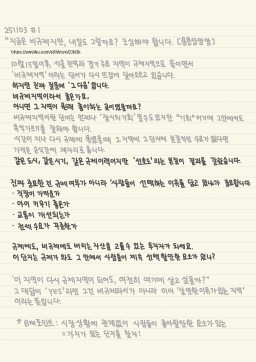 251103 #1
"지금은 비규제지만, 내일도 그럴까요? 조심해야 합니다.
10월 15일 이후, 서울 전역과 경기 주요 지역이 규제지역으로 묶이면서
'비규제지역'이라는 단어가 다시 뜨겁게 달아오르고 있습니다.
하지만 진짜 질문에 '그 다음'입니다.
비규제지역이라서 좋은가요,
아니면 그 지역이 원래 좋아하는 곳이었을까요?
비규제지역이란 단어는 언제나
시장이 다시 규제에 묶였을 때 그 지역에 그 단지에 본질적인 수요가 없다면
가격은 순식간에 제자리로 돌아갑니다.
같은 도시, 같은 시기, 같은 규제이력이지만 '선호도'라는 본질이 결과를 갈랐습니다.
진짜 중요한 건 규제여부가 아니라 '사람들이 선택하는 이유를 담고 있는가' 중요합니다
· 직장이 가까운가
· 아이 키우기 좋은가
· 교통이 개선되는가
· 전세 수요가 꾸준한가
규제에도, 비규제에도 버티는 자산을 고를 수 있는 투자자가 되세요.
이 단지는 규제가 와도 그 안에서 사람들이 계속 선택할만한 요소가 있나?
"이 지역이 다시 규제지역이 되어도, 여전히 여기에 살고 싶을까?"
그 대답이 'YES'라면 그건 비규제라서가 아니라 이미 '선택할 이유가 있는 지역'
이라는 뜻입니다.
* BM포인트 : 시장상황에 관계없이 사람들이 좋아할만한 요소가 있는
= 가치가 있는 단지를 찾자!